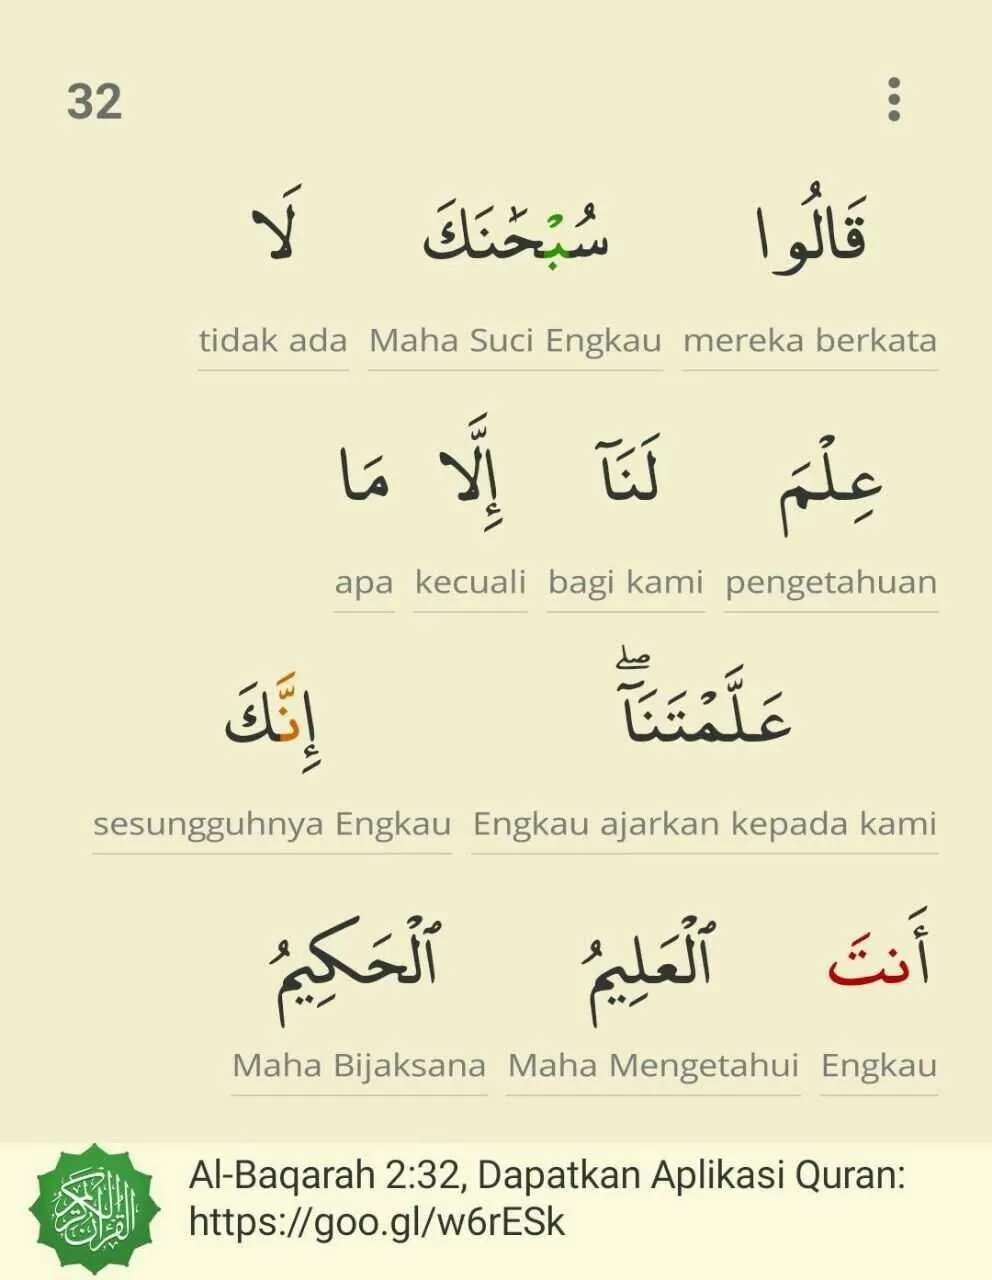 32
قَالُوا سُبْحَٰنَكَ لَا
mereka berkata Maha Suci Engkau tidak ada
عِلْمَ لَنَآ إِلَّا مَا
pengetahuan bagi kami kecuali apa
عَلَّمْتَنَآ ۖ إِنَّكَ
Engkau ajarkan kepada kami sesungguhnya Engkau
أَنتَ ٱلْعَلِيمُ ٱلْحَكِيمُ
Engkau Maha Mengetahui Maha Bijaksana
القرآن الكريم
Al-Baqarah 2:32, Dapatkan Aplikasi Quran:
https://goo.gl/w6rESk